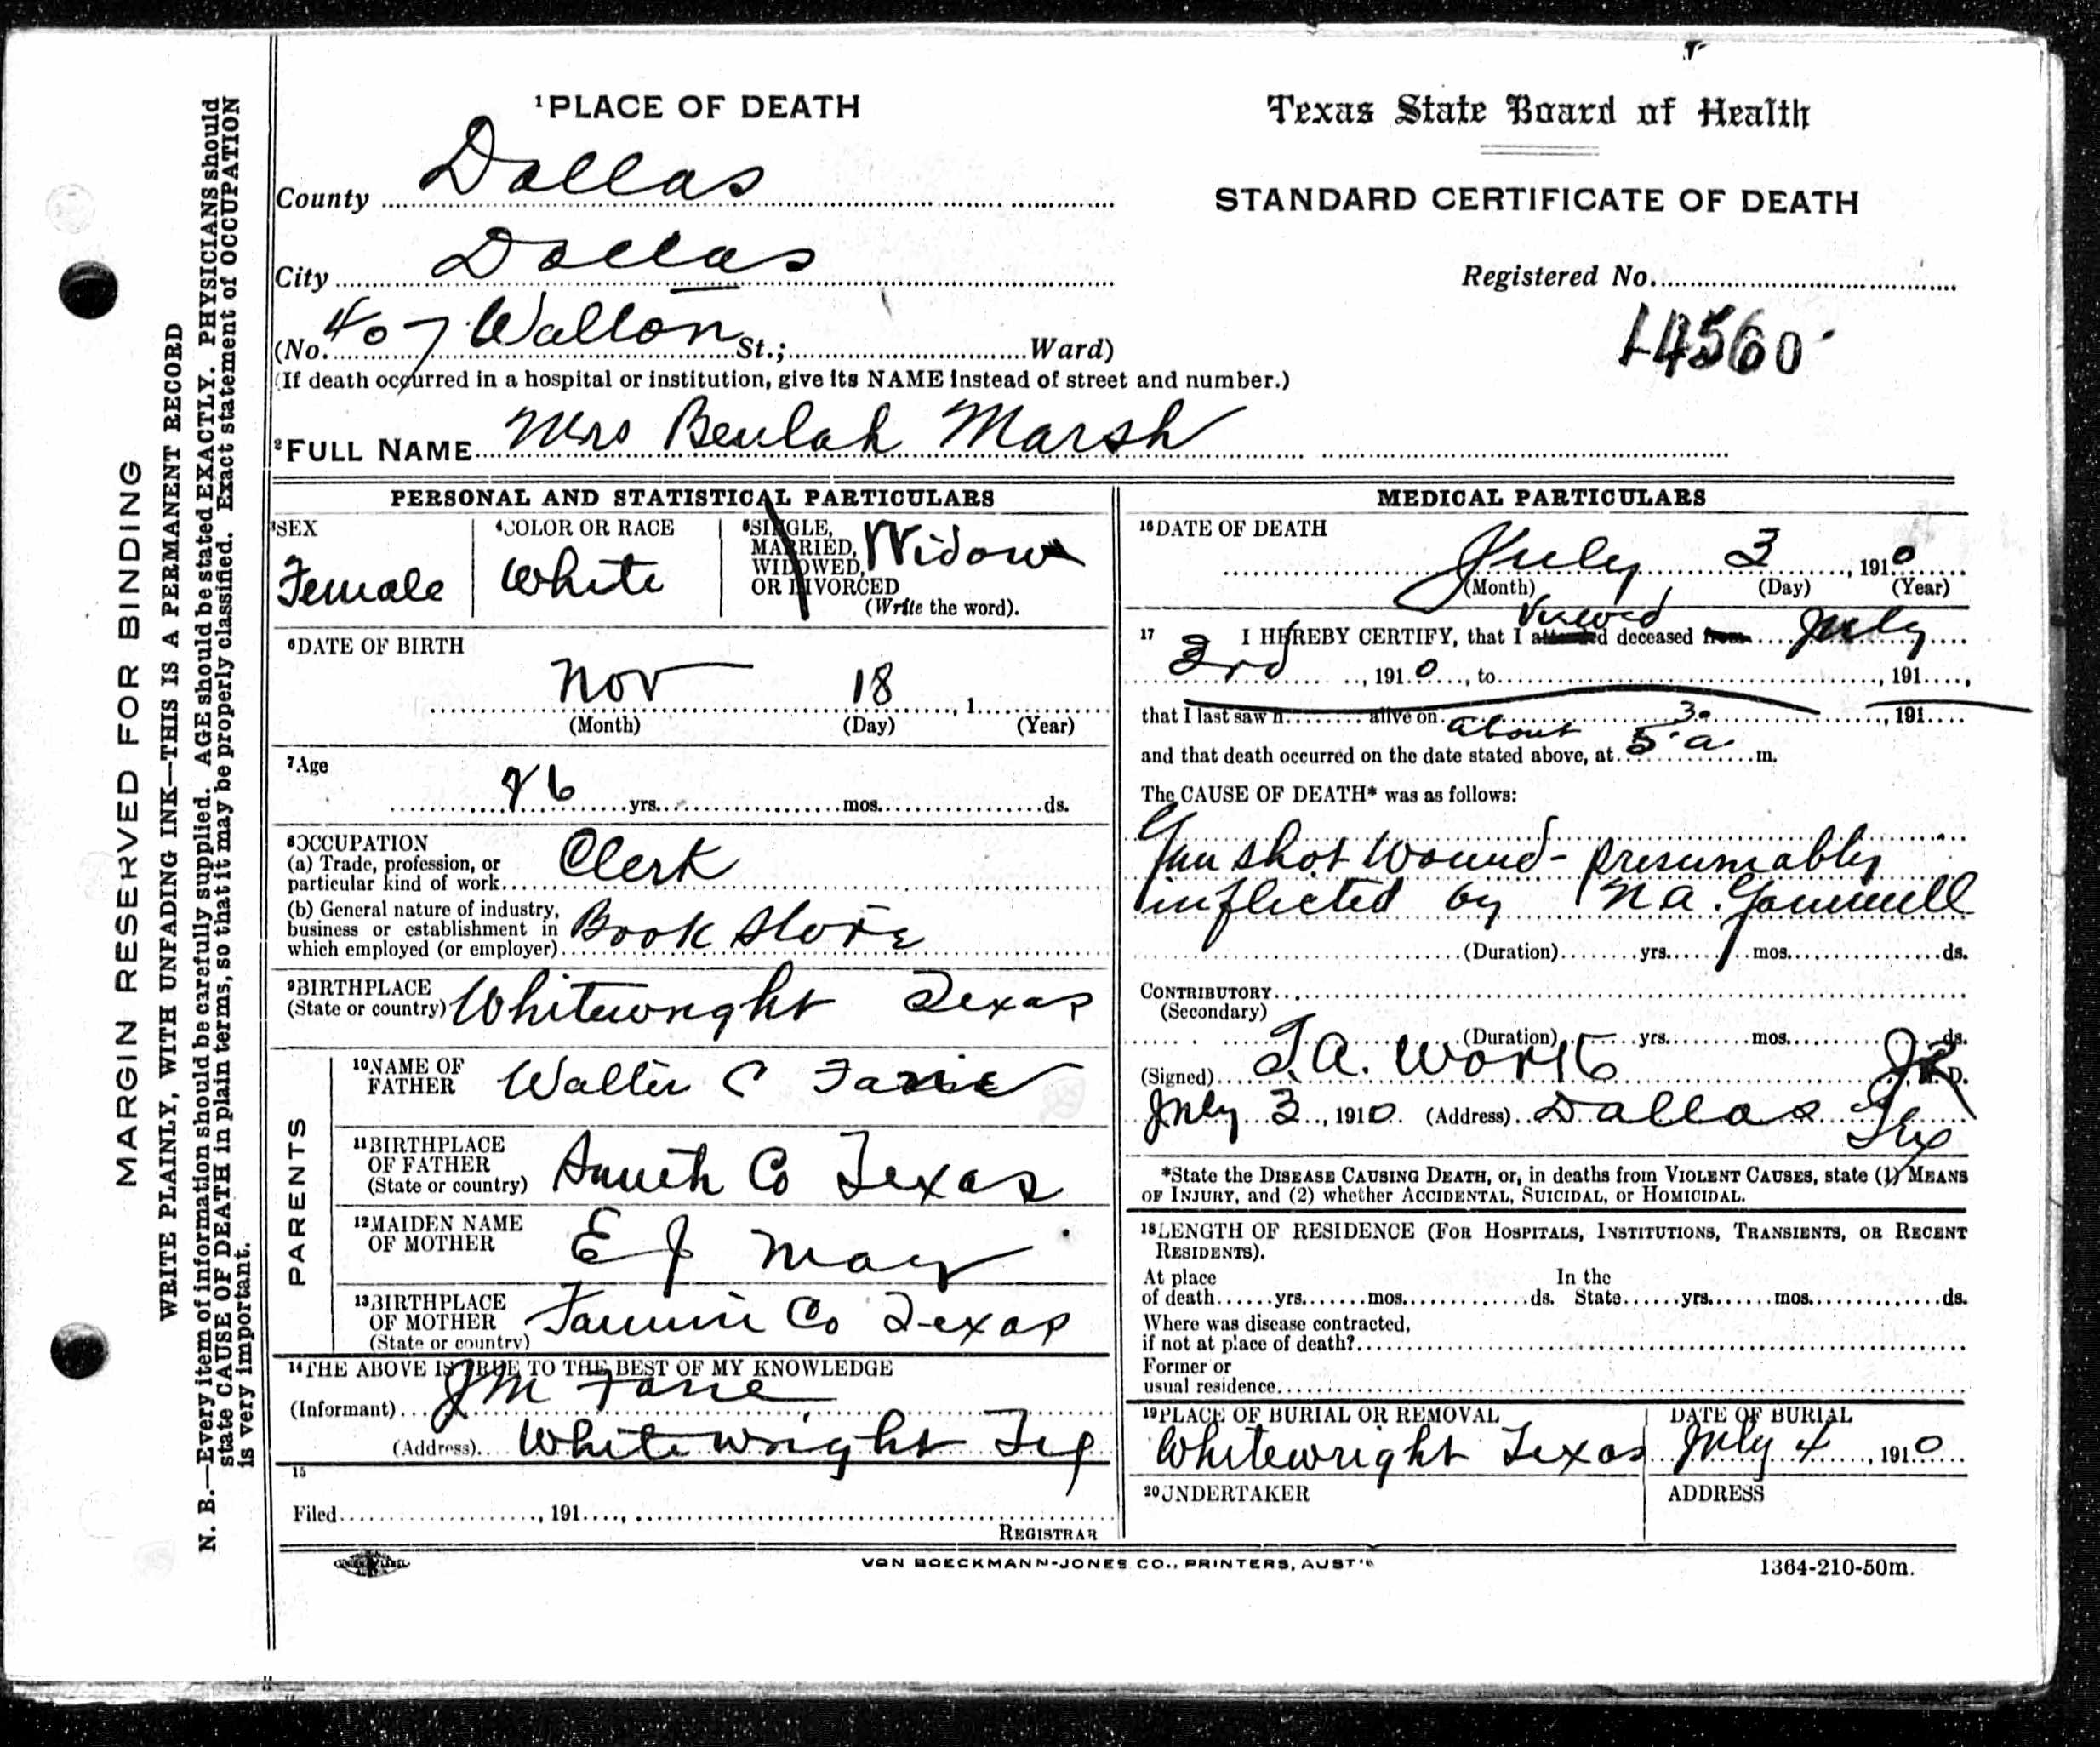 MARGIN RESERVED FOR BINDING
WRITE PLAINLY, WITH UNFADING INK—THIS IS A PERMANENT RECORD
N. B.—Every item of information should be carefully supplied. AGE should be stated EXACTLY. PHYSICIANS should
state CAUSE OF DEATH in plain terms, so that it may be properly classified. Exact statement of OCCUPATION
is very important.
1 PLACE OF DEATH
County Dallas
City Dallas
(No. 407 Wallon St.; Ward)
(If death occurred in a hospital or institution, give its NAME instead of street and number.)
2 FULL NAME Mrs Beulah Marsh
Texas State Board of Health
STANDARD CERTIFICATE OF DEATH
Registered No.
14560
PERSONAL AND STATISTICAL PARTICULARS
3 SEX
Female
4 COLOR OR RACE
White
5 SINGLE,
MARRIED,
WIDOWED,
OR DIVORCED
(Write the word).
Widow
6 DATE OF BIRTH
Nov 18, 1
(Month) (Day) (Year)
7 Age
26 yrs. mos. ds.
8 OCCUPATION
(a) Trade, profession, or
particular kind of work Clerk
(b) General nature of industry,
business or establishment in
which employed (or employer) Book Store
9 BIRTHPLACE
(State or country) Whitewright Texas
PARENTS
10 NAME OF
FATHER Walter C
11 BIRTHPLACE
OF FATHER
(State or country) Smith Co Texas
12 MAIDEN NAME
OF MOTHER E J May
13 BIRTHPLACE
OF MOTHER
(State or country) Fannin Co Texas
14 THE ABOVE IS TRUE TO THE BEST OF MY KNOWLEDGE
(Informant) J M
(Address) Whitewright Tex
15
Filed , 191 ,
REGISTRAR
MEDICAL PARTICULARS
16 DATE OF DEATH
July 3, 1910
(Month) (Day) (Year)
Viewed
17 I HEREBY CERTIFY, that I attended deceased from July
3rd, 1910, to , 191 ,
that I last saw h alive on , 191
about 30
and that death occurred on the date stated above, at 5 a m.
The CAUSE OF DEATH* was as follows:
Gun shot wound - presumably
inflicted by N A. Gammell
(Duration) yrs. mos. ds.
CONTRIBUTORY
(Secondary)
(Duration) yrs. mos. ds.
(Signed) T. A. Work JP M. D.
July 3, 1910 (Address) Dallas Tex
*State the DISEASE CAUSING DEATH, or, in deaths from VIOLENT CAUSES, state (1) MEANS
OF INJURY, and (2) whether ACCIDENTAL, SUICIDAL, or HOMICIDAL.
18 LENGTH OF RESIDENCE (FOR HOSPITALS, INSTITUTIONS, TRANSIENTS, OR RECENT
RESIDENTS).
At place In the
of death yrs. mos. ds. State yrs. mos. ds.
Where was disease contracted,
if not at place of death?
Former or
usual residence
19 PLACE OF BURIAL OR REMOVAL
Whitewright Texas
DATE OF BURIAL
July 4, 1910
20 UNDERTAKER
ADDRESS
VON BOECKMANN-JONES CO., PRINTERS, AUSTIN
1364-210-50m.